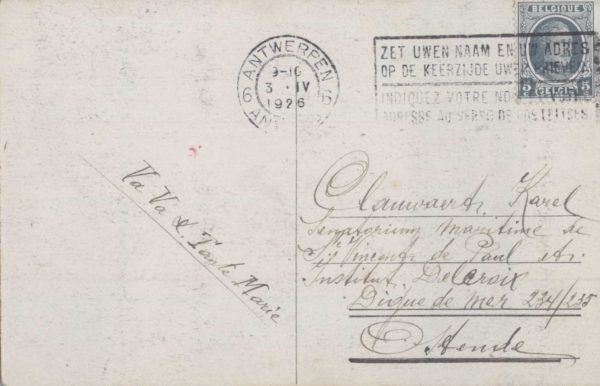 BELGIQUE
5 BELGIË 5
ANTWERPEN
9-10
3 · IV
1926
6 6
ZET UWEN NAAM EN UW ADRES
OP DE KEERZIJDE UWER BRIEVEN
INDIQUEZ VOTRE NOM ET VOTRE
ADRESSE AU VERSO DE VOS LETTRES
Va Va & Tante Marie
Clauwaert, Karel
Senatorium Maritime de
St Vincent de Paul et.
Institut, Delcroix
Digue de mer 234/235
Ostende